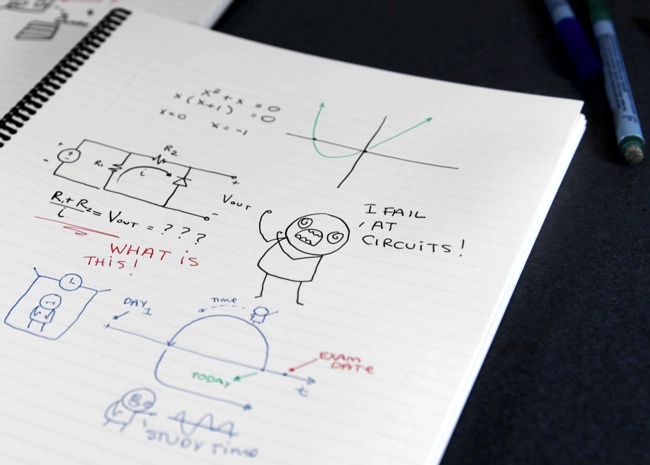 x² + x = 0
x(x+1) = 0
x=0 x=-1
R2
R1
i
+
-
+
-
VOUT
R1+R2/i = VOUT = ? ? ?
WHAT IS
THIS!
I FAIL
AT
CIRCUITS!
DAY 1
TIME
TODAY
EXAM
DATE
t
STUDY TIME